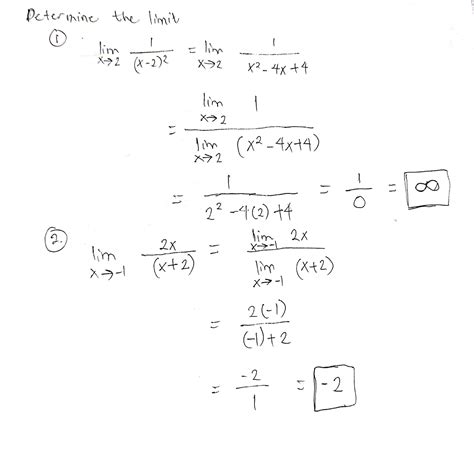 Determine the limit
① lim x→2 1/(x-2)² = lim x→2 1/x²-4x+4
= lim x→2 1 / lim x→2 (x²-4x+4)
= 1/2²-4(2)+4 = 1/0 = ∞
②. lim x→-1 2x/(x+2) = lim x→-1 2x / lim x→-1 (x+2)
= 2(-1)/(-1)+2
= -2/1 = -2